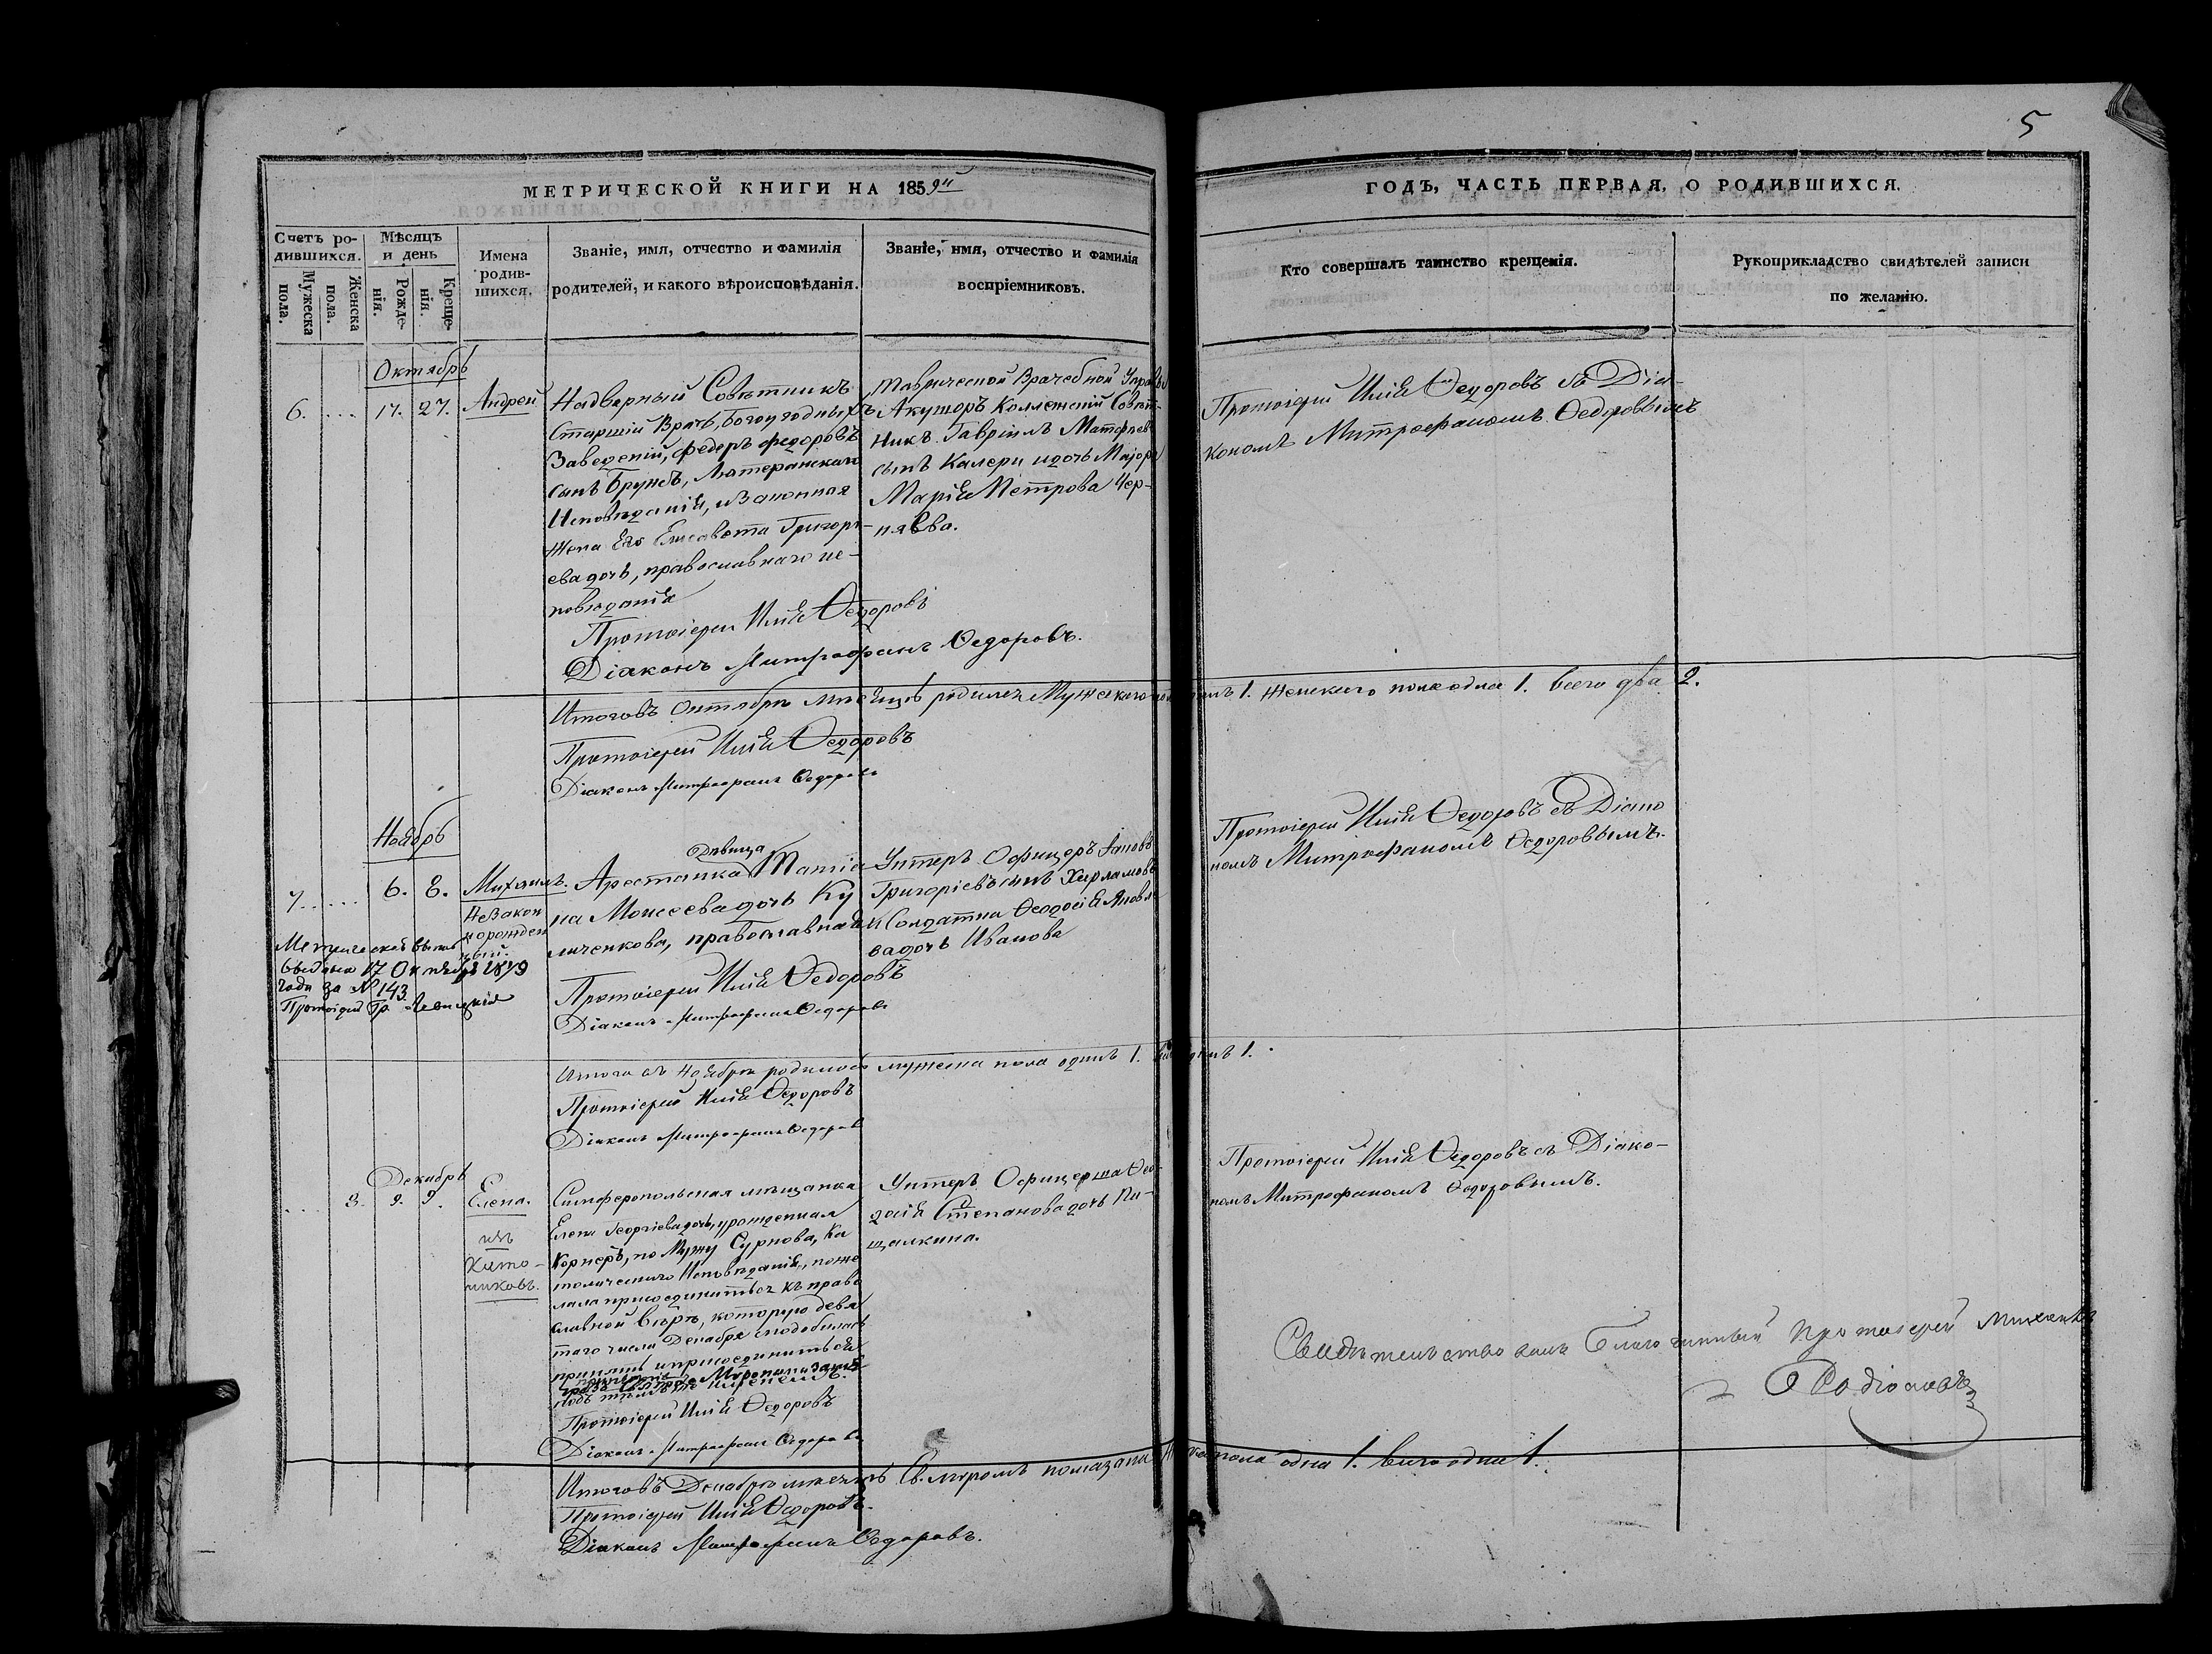 5
МЕТРИЧЕСКОЙ КНИГИ НА 1859й
ГОДЪ, ЧАСТЬ ПЕРВАЯ, О РОДИВШИХСЯ.
Счетъ ро-
дившихся.
Мужеска
пола.
Женска
пола.
Мѣсяцъ
и день
Рожде-
нія.
Креще-
нія.
Имена
родив-
шихся.
Званіе, имя, отчество и фамилія
родителей, и какого вѣроисповѣданія.
Званіе, имя, отчество и фамилія
воспріемниковъ.
Кто совершалъ таинство крещенія.
Рукоприкладство свидѣтелей записи
по желанію.
Октябрь
6. 17. 27. Андрей
Надворный Совѣтникъ
Старшій Врачъ, Богоугодныхъ
Заведеній, Федоръ Федоровъ
сынъ Брунсъ, Лютеранскаго
Исповѣданія, изаконная
Жена Его Елисавета Григорь-
ева дочь, православнаго ис-
повѣданія
Протоіерей Илія Ѳедоровъ
Діаконъ Митрофанъ Ѳедоровъ.
Таврической Врачебной Управы
Акушоръ Коллежскій Совѣт-
никъ Гавріилъ Матфѣев
сынъ Калери идочь Маіора
Марія Петрова Чер-
няЕва.
Протоіерей Илія Ѳедоровъ съ Діа-
кономъ Митрофаномъ Ѳедоровымъ
Итого въ Октябрѣ мѣсяцѣ родилось Мужскаго 1. Женскаго пола одна 1. всего два 2.
Протоіерей Илія Ѳедоровъ
Діаконъ Митрофанъ Ѳедоровъ
Ноябрь
7. 6. 8. Михаилъ.
Незакон
норожден
ный.
Дѣвица
Арестанка Татіа
на Моисеева дочь Ку
личенкова, православная
Протоіерей Илія Ѳедоровъ
Діаконъ Митрофанъ Ѳедоровъ
Унтеръ Офицеръ
Григоріевъ сынъ Харламовъ
и Солдатка Ѳеодосія Яковле
ва дочь Иванова
Протоіерей Илія Ѳедоровъ съ Діако
номъ Митрофаномъ Ѳедоровымъ.
17 Октября 1879
года за № 143
Протоіерей Гр.
Итого въ Ноябрѣ родилось мужеска пола одинъ 1. одинъ 1.
Протоіерей Илія Ѳедоровъ
Діаконъ Митрофанъ Ѳедоровъ
Декабрь
3. 9. 9. Елена.
изъ
Като-
ликовъ.
Симферопольская мѣщанка
Елена Георгіева дочь, урожденная
Корнеръ, по Мужу Сурнова, Ка
толическаго Исповѣданія, поже
лала присоединиться къ право
славной вѣрѣ, которую девя
таго числа Декабря сподобилась
принять и присоединиться
Муропомазанія
Протоіерей Илія Ѳедоровъ
Діаконъ Митрофанъ Ѳедоровъ
Унтеръ Офицерша Ѳео-
досія Степанова дочь Пи-
щалкина.
Протоіерей Илія Ѳедоровъ съ Діако-
номъ Митрофаномъ Ѳедоровымъ.
Свидѣтельствовалъ Благочинный Протоіерей Михаилъ
Родіоновъ
Итого въ Декабрѣ мѣсяцѣ Св. муромъ помазана пола одна 1. всего одна 1.
Протоіерей Илія Ѳедоровъ.
Діаконъ Митрофанъ Ѳедоровъ.